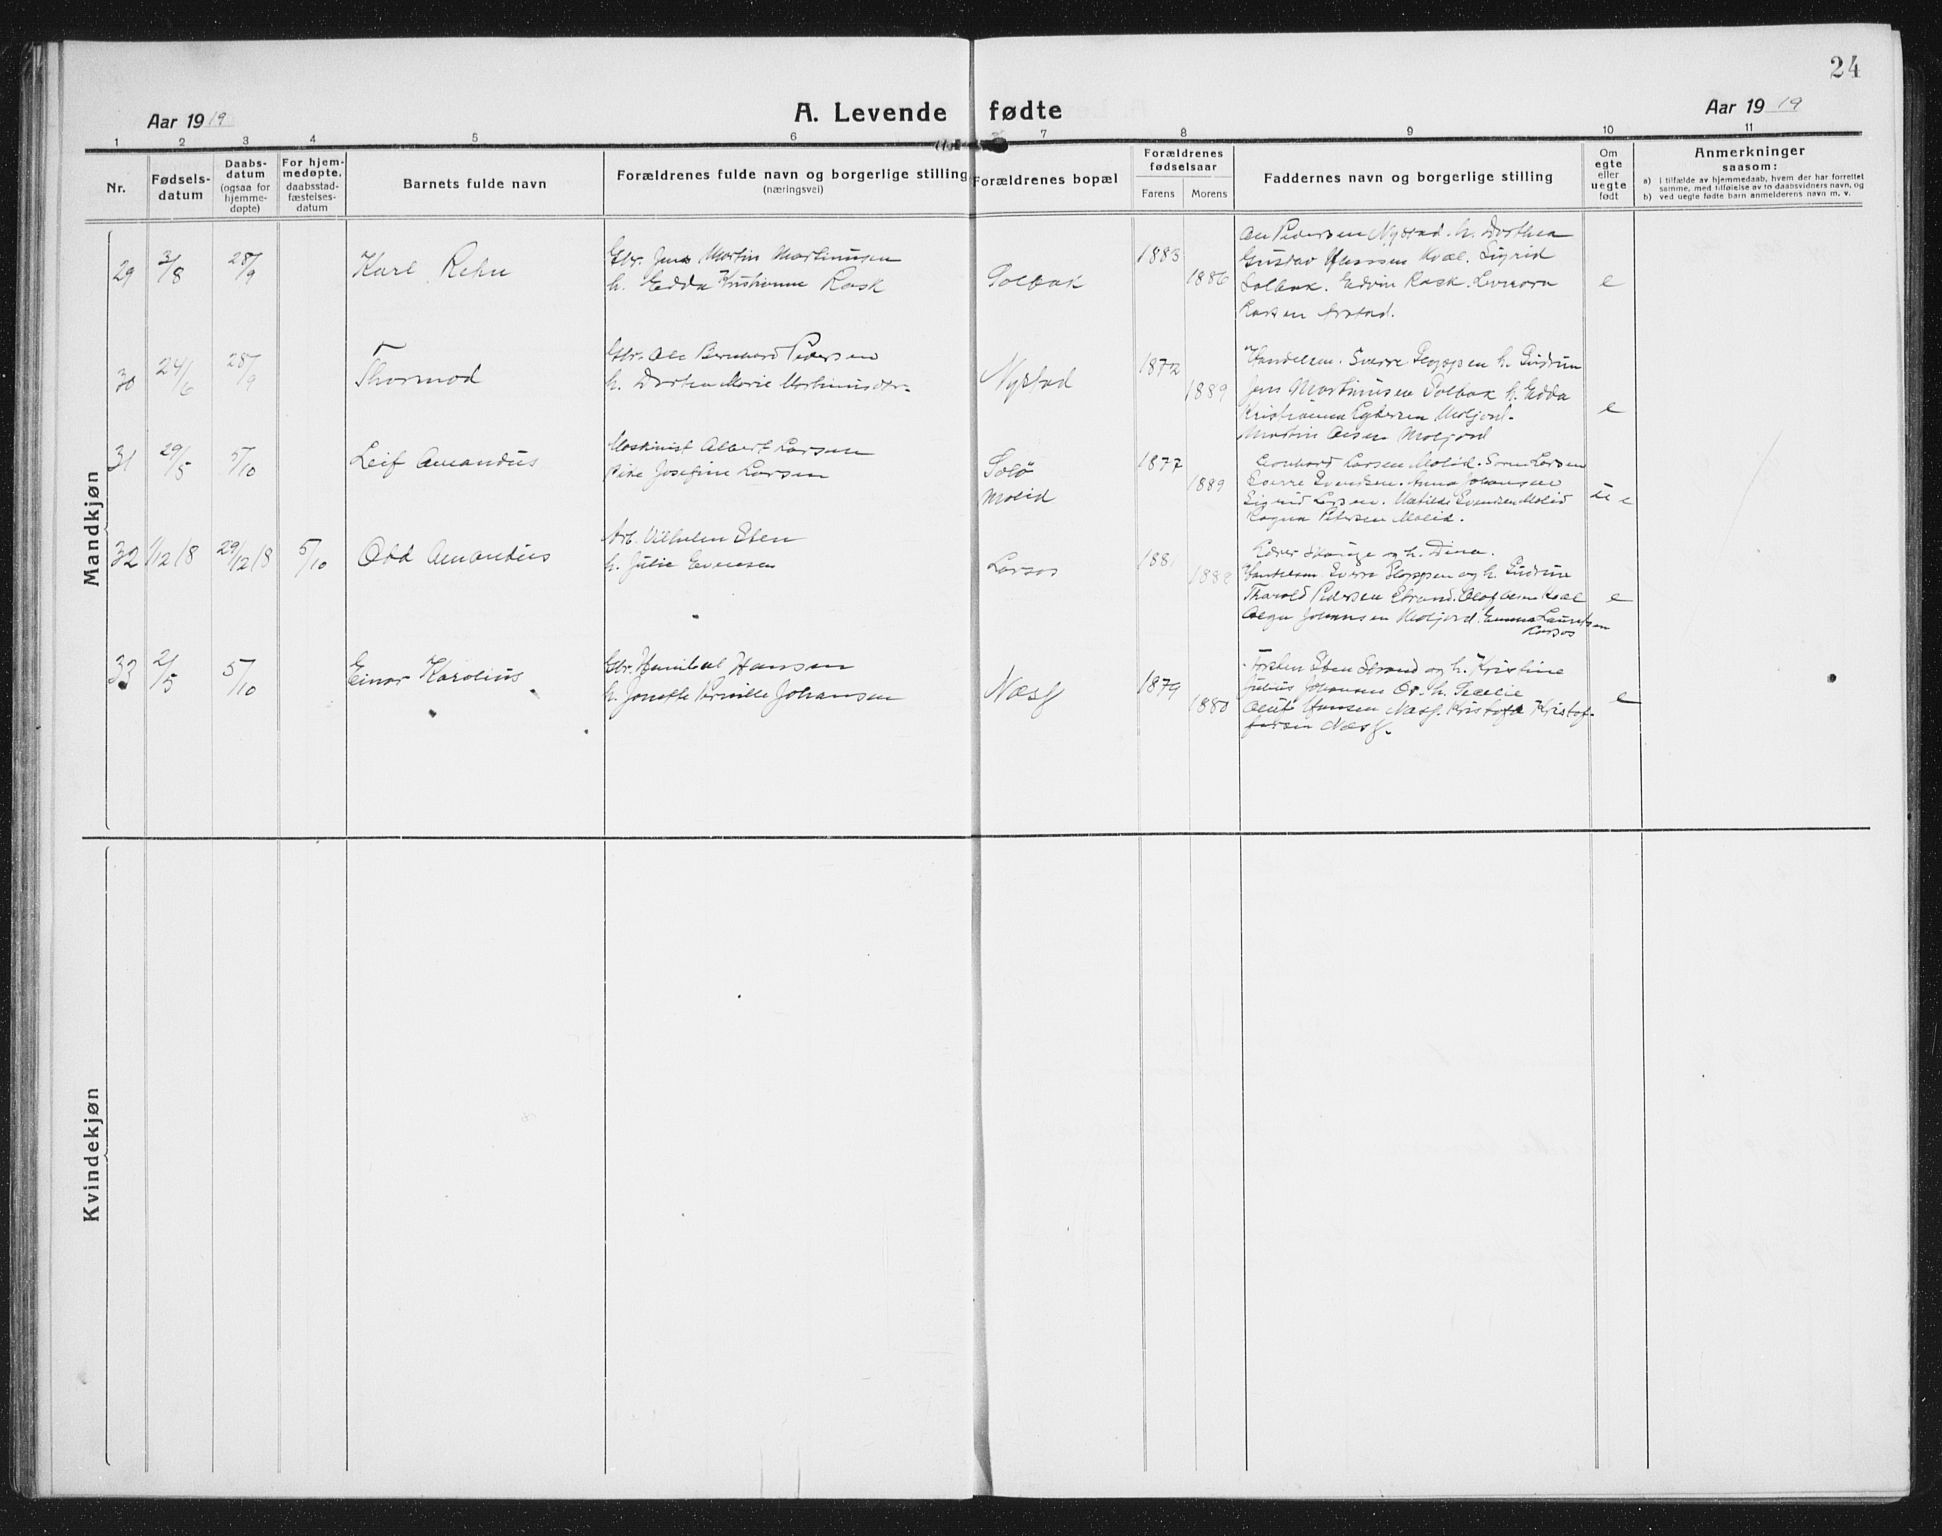 24
Aar 1919
A. Levende fødte
Aar 1919
1 2 3 4 5 6 7 8 9 10 11
Nr.
Fødsels-
datum
Daabs-
datum
(ogsaa for
hjemme-
døpte)
For hjem-
medøpte,
daabsstad-
fæstelses-
datum
Barnets fulde navn
Forældrenes fulde navn og borgerlige stilling
(næringsvei)
Forældrenes bopæl
Forældrenes
fødselsaar
Farens Morens
Faddernes navn og borgerlige stilling
Om
egte
eller
uegte
født
Anmerkninger
saasom:
a) i tilfælde av hjemmedaab, hvem der har forrettet
samme, med tilføielse av to daabsvidners navn, og
b) ved uegte fødte barn anmelderens navn m. v.
Mandkjøn
29 3/8 28/9 Karl Rehn
Gbr. Jens Martin Martinussen
h. Edda Kristianne Rask
Solbak
1883
1886
Ole Pedersen Nystad. h. Dorthea
Gustav Hanssen Kval. Sigrid
Solbak. Edvin Rask.
Larsen
e
30 24/6 28/9 Thormod
Gbr. Ole Bernhard Pedersen
h. Dortea Marie Martinusdtr.
Nystad
1872
1889
Handelsm. Sverre h. Gudrun
Jens Martinusen Solbak h. Edda
Kristianna Pedersen Moljord.
Martin Olsen Moljord
e
31 29/5 5/10 Leif Amandus
Maskinist Albert Larsen
Pike Josefine Larsen
Molid
1877
1889
Leonhard Larsen Molid.
Sverre Evensen. Anna Johansen
Sigrid Larsen. Matilde Evensen Molid
Ragna Petersen Molid.
u e
32 1/12 18 29/12 18 5/10 Odd Amandus
Arb. Vilhelm Eben
h. Julie Evensen
Larsos
188
188
og h. Dina.
Handelsm. Sverre og h. Gudrun
Harold Pedersen Strand. Olaf Olsen Kval
Olga Johansen Moljord. Emma Lauritsen
Larsos
e
33 2/5 5/10 Einar Karolius
Gbr. Hanibal Hansen
h. Jonette Pernille Johansen
Næss
1879
1880
Torsten Eben Strand og h. Kristine
Julius Johansen h. Cecelie
Hansen Næss. Kristof-
fersen Næss.
e
Kvindekjøn